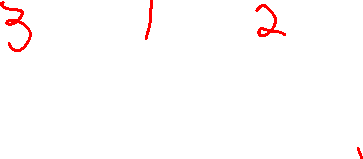 3 1 2